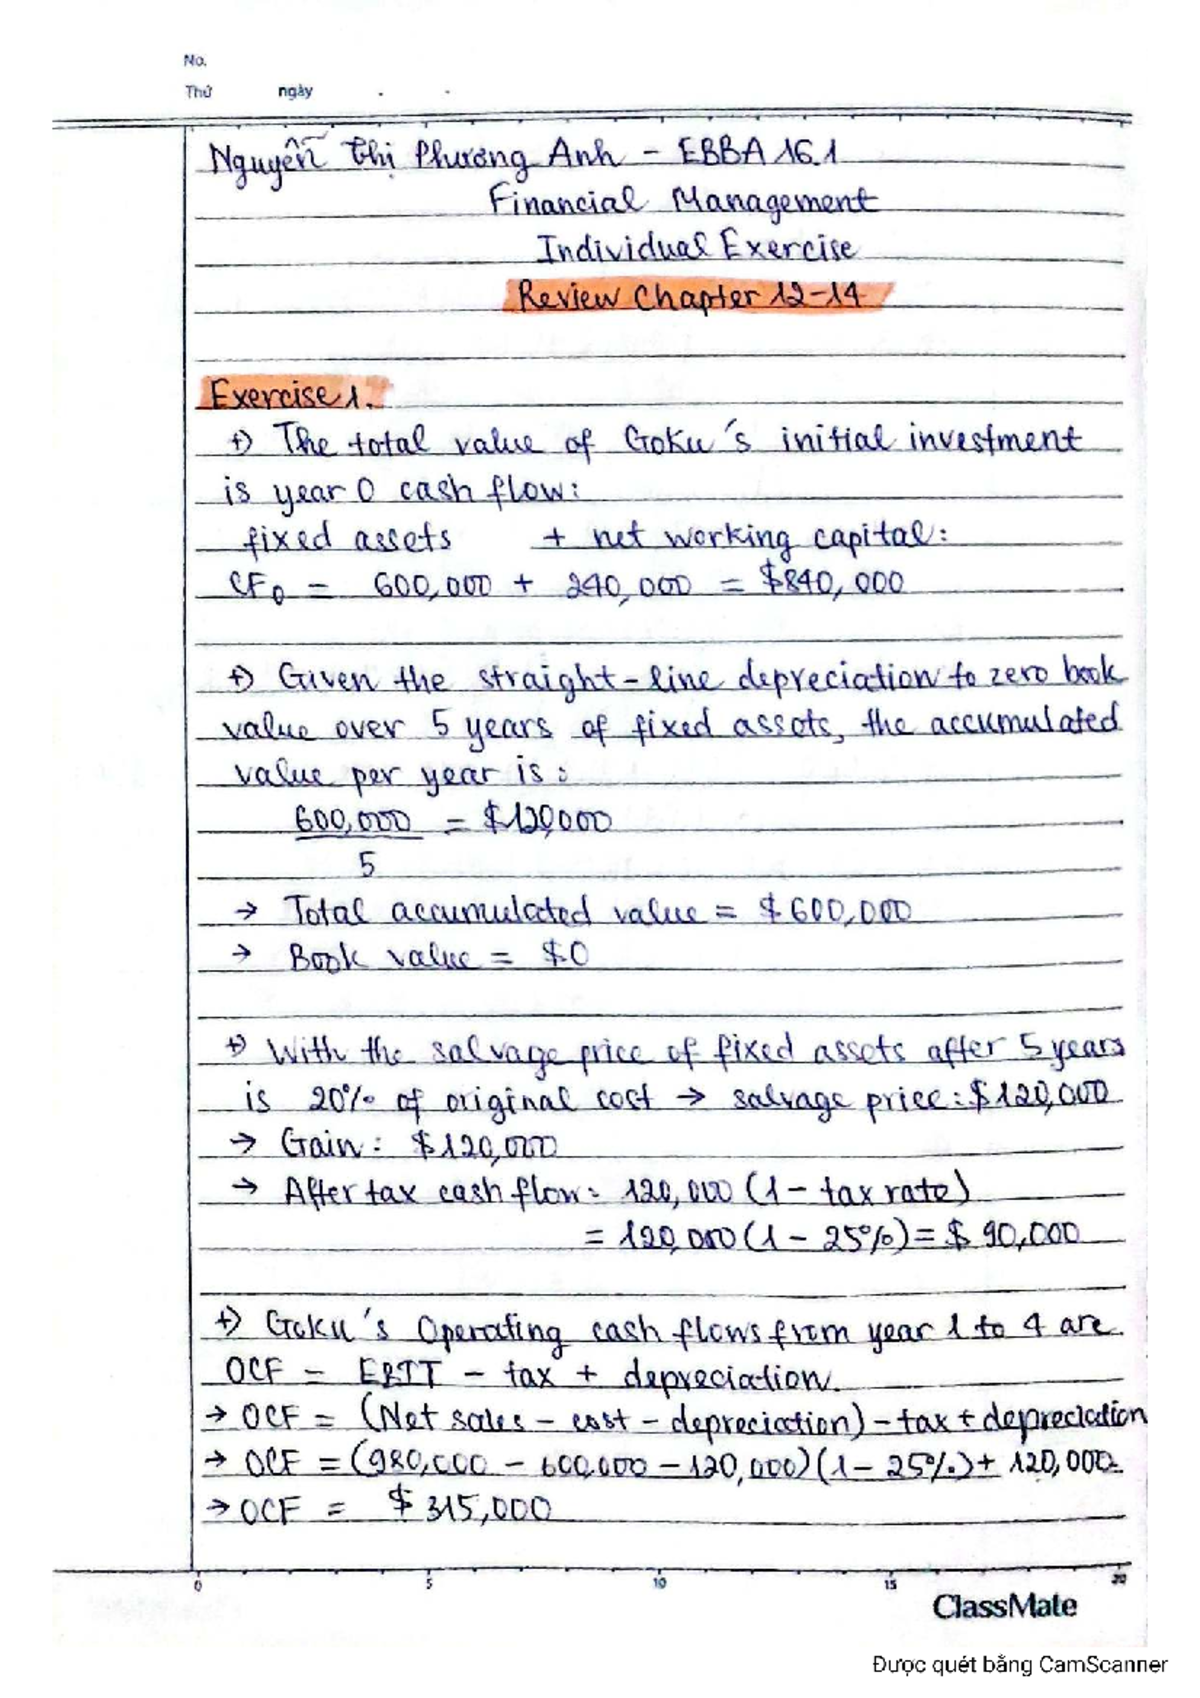 No.
Thứ ngày . .
Nguyễn Thị Phương Anh - EBBA 16.1
Financial Management
Individual Exercise
Review Chapter 12-14
Exercise 1.
+) The total value of Goku's initial investment
is year 0 cash flow:
fixed assets + net working capital:
CF₀ = 600,000 + 240,000 = $840,000
+) Given the straight-line depreciation to zero book
value over 5 years of fixed assets, the accumulated
value per year is:
600,000 = $120,000
5
→ Total accumulated value = $600,000
→ Book value = $0
+) With the salvage price of fixed assets after 5 years
is 20% of original cost → salvage price: $120,000
→ Gain: $120,000
→ After tax cash flow: 120,000 (1 - tax rate)
= 120,000 (1 - 25%) = $90,000
+) Goku's Operating cash flows from year 1 to 4 are
OCF = EBIT - tax + depreciation.
→ OCF = (Net sales - cost - depreciation) - tax + depreciation
→ OCF = (980,000 - 600,000 - 120,000)(1 - 25%) + 120,000
→ OCF = $315,000
0 5 10 15 20
ClassMate
Được quét bằng CamScanner